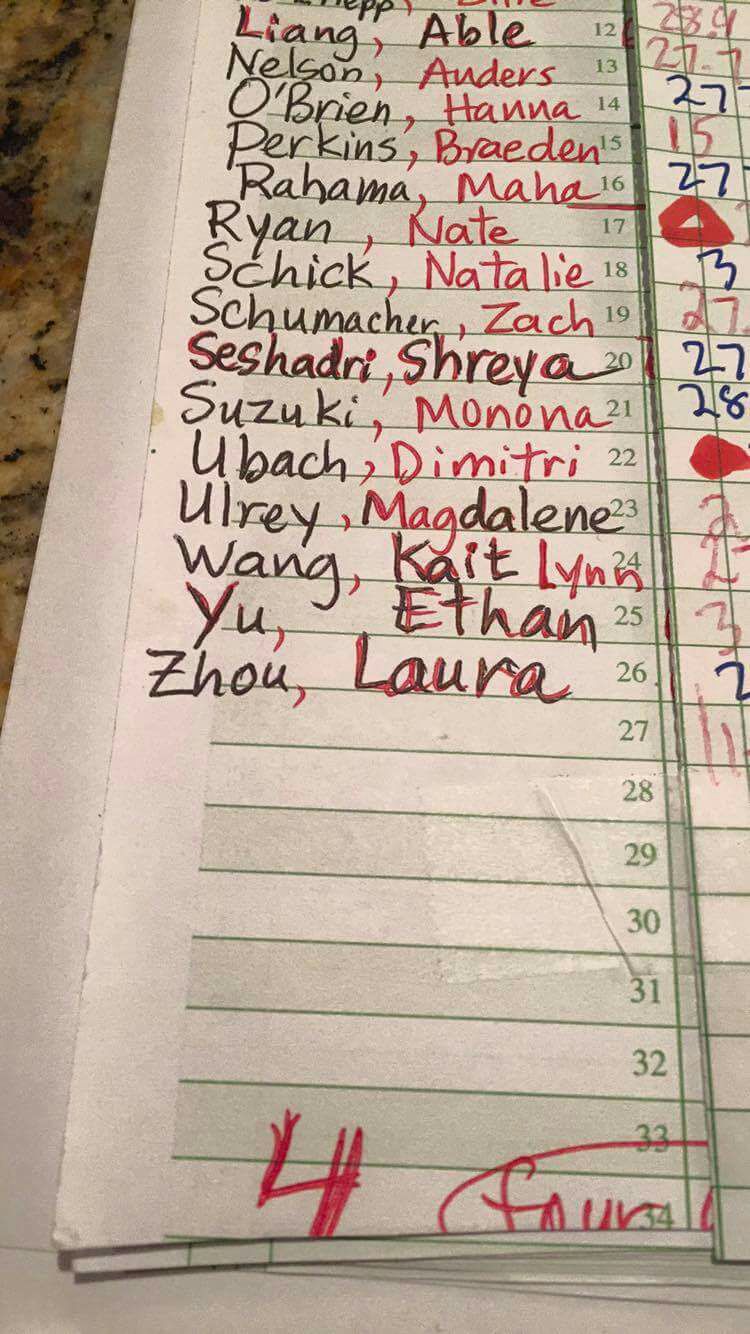 Liang, Able 12 28.9
Nelson, Anders 13 27.7
O'Brien, Hanna 14 27
Perkins, Braeden 15 15
Rahama, Maha 16 27
Ryan, Nate 17
Schick, Natalie 18 3
Schumacher, Zach 19 27.
Seshadri, Shreya 20 27
Suzuki, Monona 21 28
Ubach, Dimitri 22
Ulrey, Magdalene 23 2
Wang, Kait Lynn 24 2
Yu, Ethan 25 3
Zhou, Laura 26 2
27 11
28
29
30
31
32
33
4 four 34